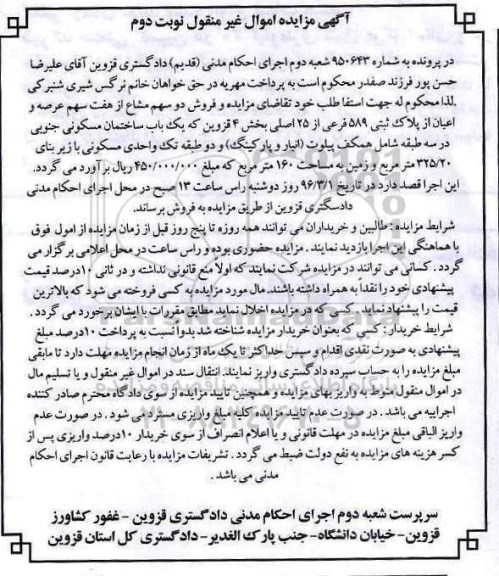 آگهی مزایده اموال غیر منقول نوبت دوم
در پرونده به شماره ۹۵۰۶۴۳ شعبه دوم اجرای احکام مدنی (قدیم) دادگستری قزوین آقای علیرضا
حسن پور فرزند صفدر محکوم است به پرداخت مهریه در حق خواهان خانم نرگس شیری شنبرکی
.لذا محکوم له جهت استفا طلب خود تقاضای مزایده و فروش دو سهم مشاع از هفت سهم عرصه و
اعیان از پلاک ثبتی ۵۸۹ فرعی از ۲۵ اصلی بخش ۴ قزوین که یک باب ساختمان مسکونی جنوبی
در سه طبقه شامل همکف پیلوت (انبار و پارکینگ) و دو طبقه تک واحدی مسکونی با زیر بنای
۳۲۵/۲۰ متر مربع و زمین به مساحت ۱۶۰ متر مربع که مبلغ ۴۵۰/۰۰۰/۰۰۰ ریال برآورد می گردد.
این اجرا قصد دارد در تاریخ ۹۶/۳/۱ روز دوشنبه راس ساعت ۱۳ صبح در محل اجرای احکام مدنی
دادسگتری قزوین از طریق مزایده به فروش برساند.
شرایط مزایده : طالبین و خریداران می توانند همه روزه تا پنج روز قبل از زمان مزایده از امول فوق
با هماهنگی این اجرا بازدید نمایند . مزایده حضوری بوده و راس ساعت در محل اعلامی برگزار می
گردد . کسانی می توانند در مزایده شرکت نمایند که اولا منع قانونی نداشته و در ثانی ۱۰درصد قیمت
پیشنهادی خود را نقداً به همراه داشته باشند. مال مورد مزایده به کسی فروخته می شود که بالاترین
قیمت را پیشنهاد نماید. کسی که در مزایده اخلال نماید مطابق مقررات با ایشان برخورد می گردد .
شرایط خریدار : کسی که بعنوان خریدار مزایده شناخته شد بدوا نسبت به پرداخت ۱۰درصد مبلغ
پیشنهادی به صورت نقدی اقدام و سپس حداکثر تا یک ماه از زمان انجام مزایده مهلت دارد تا مابقی
مبلغ مزایده را به حساب سپرده دادگستری واریز نمایند. انتقال سند در اموال غیر منقول و یا تسلیم مال
در اموال منقول منوط به واریز بهای مزایده و همچنین تایید مزایده از سوی دادگاه محترم صادر کننده
اجراییه می باشد . در صورت عدم تایید مزایده کلیه مبلغ واریزی مسترد می شود . در صورت عدم
واریز الباقی مبلغ مزایده در مهلت قانونی و یا اعلام انصراف از سوی خریدار ۱۰درصد واریزی پس از
کسر هزینه های مزایده به نفع دولت ضبط می گردد . تشریفات مزایده با رعایت قانون اجرای احکام
مدنی می باشد .
سرپرست شعبه دوم اجرای احکام مدنی دادگستری قزوین - غفور کشاورز
قزوین- خیابان دانشگاه- جنب پارک الغدیر- دادگستری کل استان قزوین